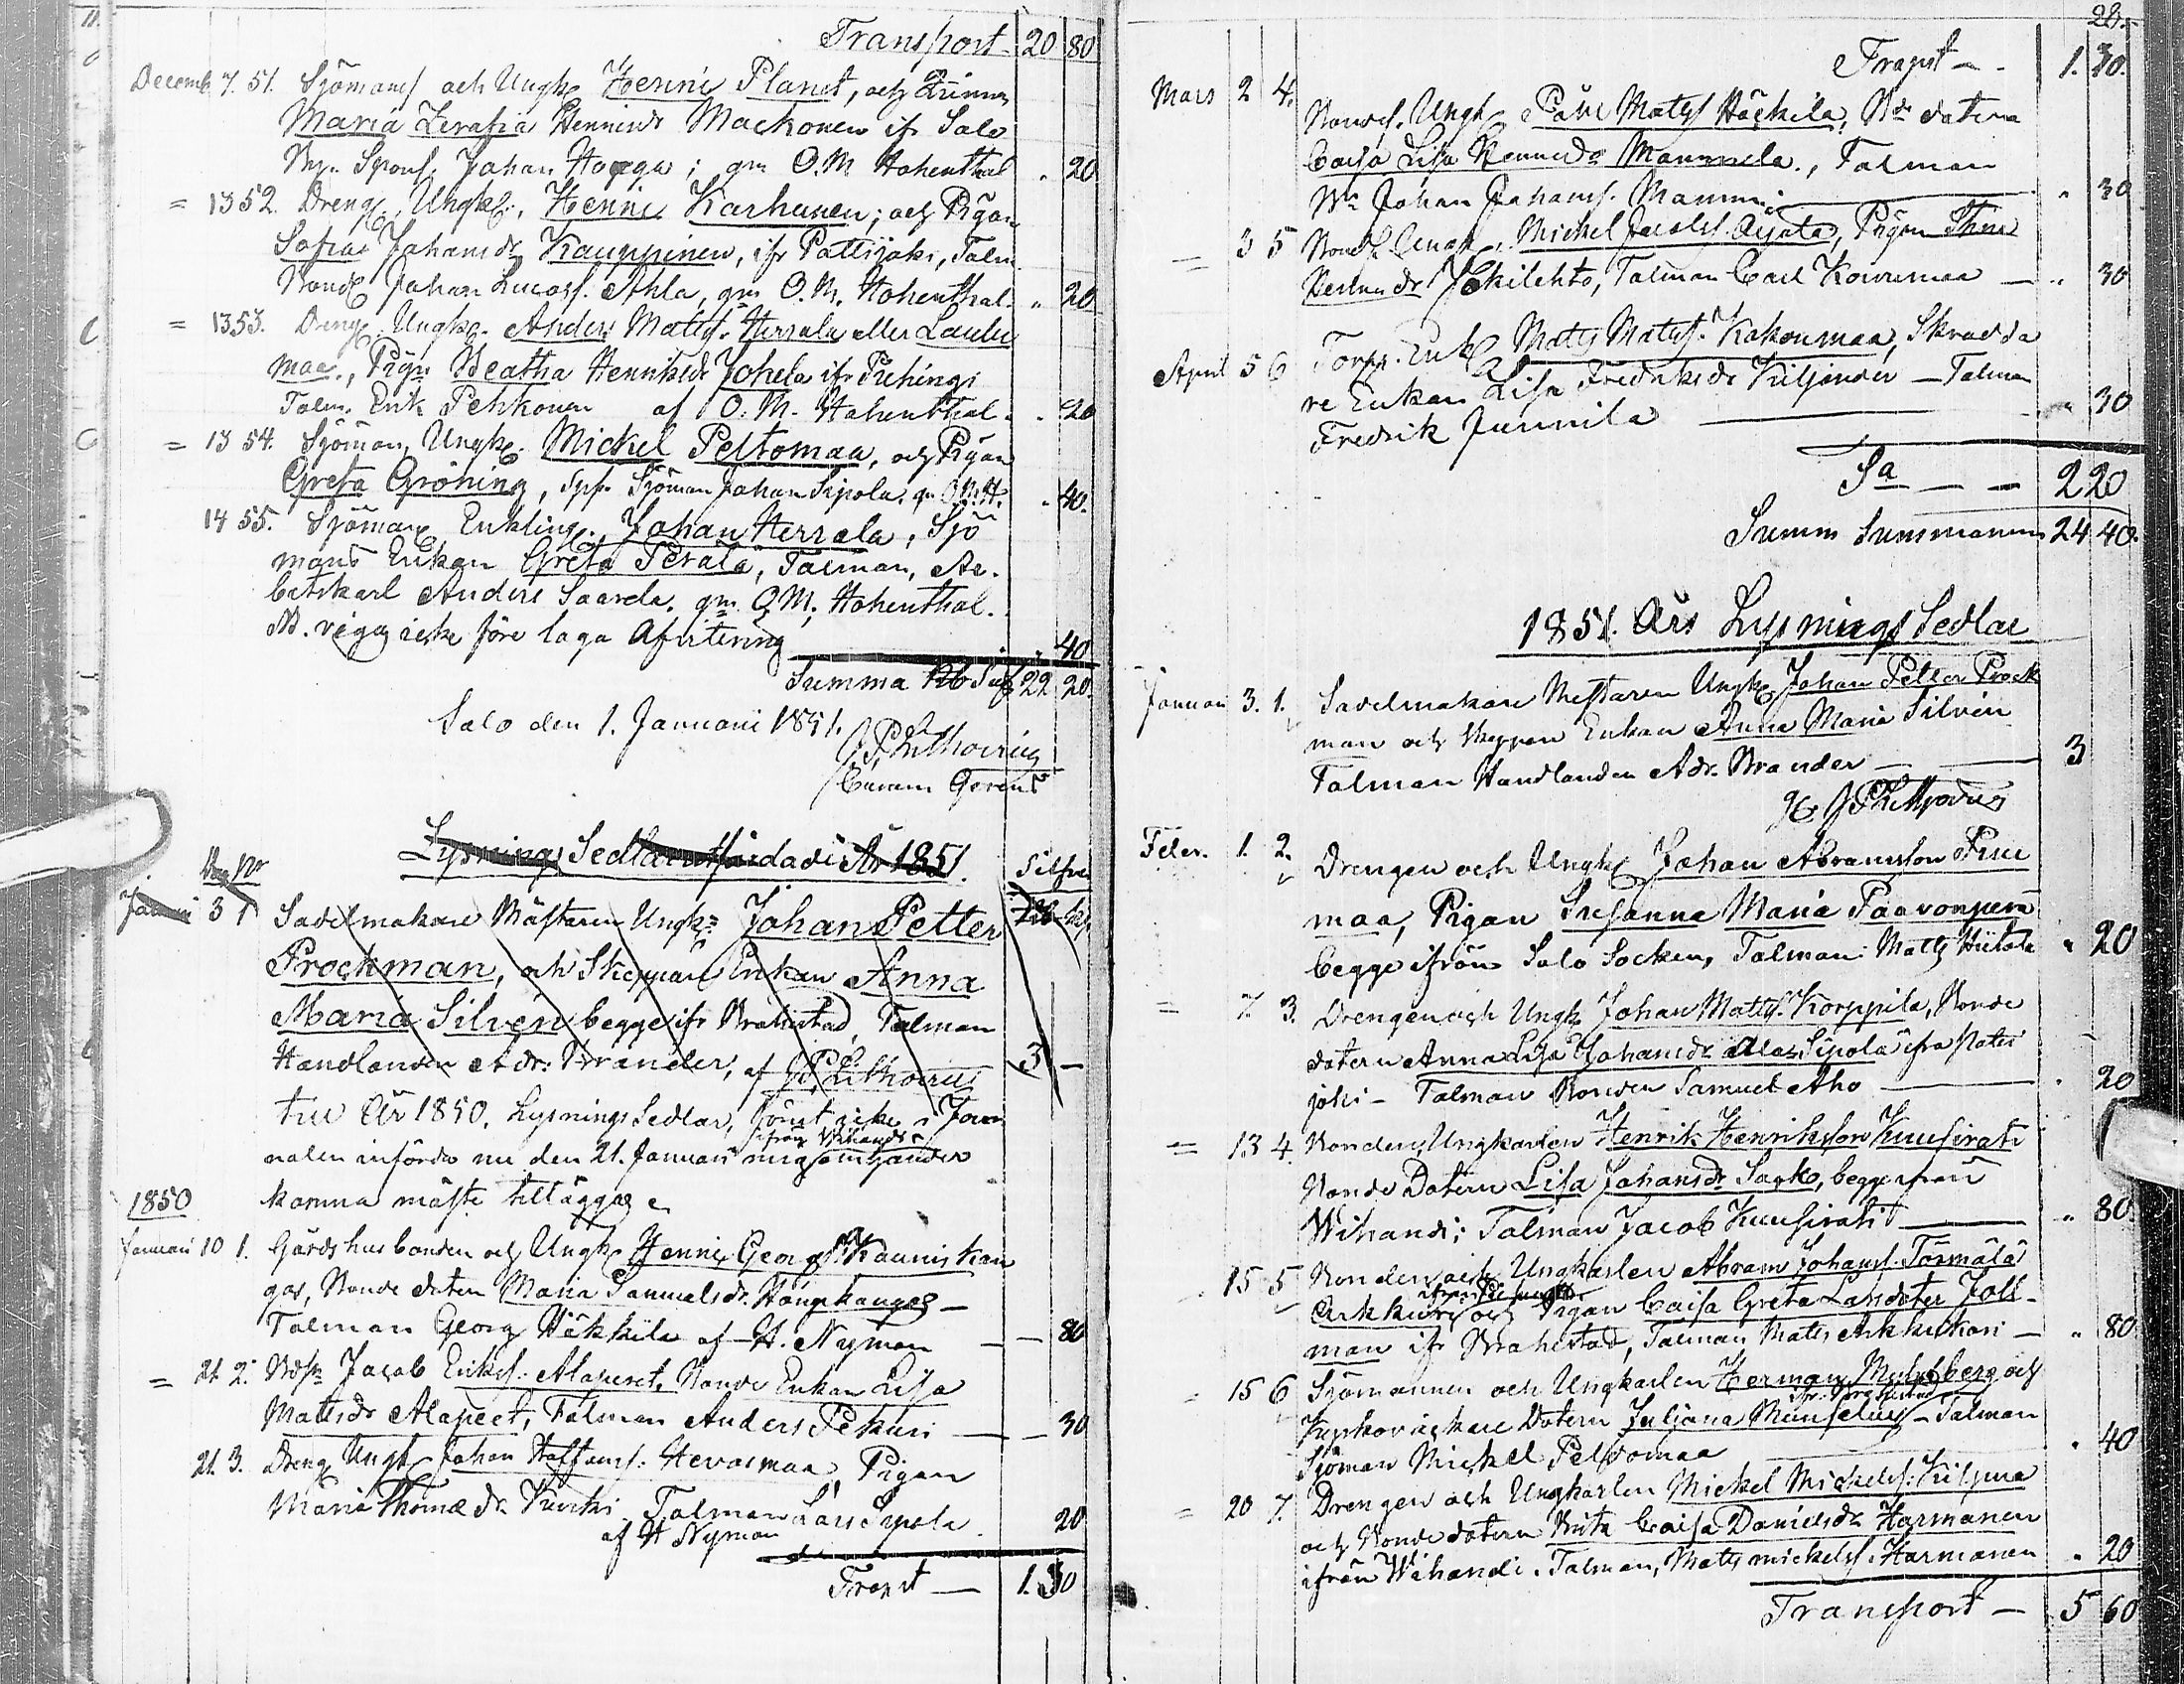 Transport 20 80
Decemb. 7. 51. Sjöman och Ungk. Henric Planet, och Qvinnan
Maria Serafia Henricsdr Mackonen ifr Salo
Spons. Johan Hoega; gm O.M Hohenthal " 20
= 13 52. Dreng. Ungk. Henric Karhunen; och Pigan
Sofia Johansdr Kauppinen, ifr Pattijoki, Talm.
Bond. Johan Lucass. Ahla, gm O.M. Hohenthal. " 20.
= 13 53. Dreng. Ungk. Anders Matts. Herrala eller Lauku
maa., Pigan Beatha Henriksdr Johela ifr Piehingi
Talm. Erik Pehkonen af O.M. Hohenthal " 20
= 13 54. Sjöman, Ungk. Mickel Peltomaa, och Pigan
Greta Gröning, Sps. Sjöman Johan Sipola, gm O.M.H. " 40.
14 55. Sjöman Enkling. Johan Herrala, Sjö
mans Enkan Greta Perälä, Talman, Ar.
betskarl Anders Saarela. gm O.M. Hohenthal.
NB. viges icke före laga Afvitering " 40
Summa Rb Silf 22 20.
Salo den 1. Januarii 1851.
J. P. Lithovius
Curam Gerens
Lysnings Sedlar utfärdade År 1851. Silfver
Dag No
Januari 3 1 Sadelmakare Mästaren Ungk. Johan Petter Rb k.
Prockman, och Skeppare Enkan Anna
Maria Silvén begge ifr Brahestad, Talman
Handlanden Adr. Brander, af J.P. Lithovius 3 —
tre År 1850. Lysnings Sedlar, förut icke i Jour
nalen införda nu den 21. Januari mig tillhanda
ifrån Wihandi
komna måste tilläggas
1850
Januari 10 1. Gårdshusbonden och Ungk. Henric Georgs. Kauniskan
gas, Bonde dotren Maria Samuelsdr. Hangkangas —
Talman Georg Häkkilä af H. Nyman — 80
= 21. 2. Jacob Eriks. Alaperet, Bonde Enkan Lisa
Matsdr Alapeet, Talman Anders Pekuri — 30
21. 3. Dreng Ungk Johan Staffans. Hevasmaa, Pigan
Maria Thomæ dr. Kurki. Talman Lars Sipola 20
af H Nyman
Transt — 1. 30
28.
Transt — 1. 30.
Mars 2 4. Bondes. Ungk. Påhl Matts. Häckilä, Bde dotren
Caisa Lisa Hennedr Mannela., Talman
Johan Johans. Mammi " 30
= 3 5 Bond. Ungk. Mickel Jacobs. Ojata, Pigan Stina
Jokilehto, Talman Carl Kouvmaa — " 30
April 5 6 Torp. Enkl. Mats Mats. Kakonmaa, Skradda
re Enkan Lisa Fredriksdr Kiljander — Talman
Fredrik Junnila " 30
Sa — — 2 20
Summa Summarum 24 40.
1851. Års Lysnings Sedlar
Januari 3. 1. Sadelmakare Mestaren Ungk. Johan Petter Prock
man och Skeppare Enkan Anna Maria Silvén
Talman Handlanden Adr. Brander — 3
J P Lithovius
Febr. 1. 2. Drengen och Ungk Johan Abramsson Piu
maa, Pigan Susanna Maria Paavonperä
begge ifrån Salo Socken, Talman Matts Hietala " 20
= 7 3. Drengen och Ungk. Johan Matts. Korppila, Bonde
dotren Anna Lisa Johansdr Ala Sipola ifrån Patti
joki — Talman Bonden Samuel Aho — " 20
= 13 4. Bonden, Ungkarlen Henrik Henriksson Kuusirati
Bonde Dotren Lisa Johansdr Sarko, begge ifrån
Wihandi; Talman Jacob Kuusirati — " 80.
15 5 Bonden och Ungkarlen Abram Johans. Törmälä
Arkkukari och Pigan Caisa Greta Larsdoter Joll-
man ifr Brahestad, Talman Mats Arkkukari — " 80
= 15 6 Sjömannen och Ungkarlen Herman Malmberg och
ifr. Brahestad
Kyrkovägkare Dotern Juliana Munselius — Talman
Sjöman Mickel Peltomaa " 40
= 20 7. Drengen och Ungkarlen Mickel Mickels. Kilpua
och Bondedotren Brita Caisa Danielsdr Harmanen
ifrån Wihandi. Talman, Mats Mickels. Harmanen " 20
Transport — 5 60